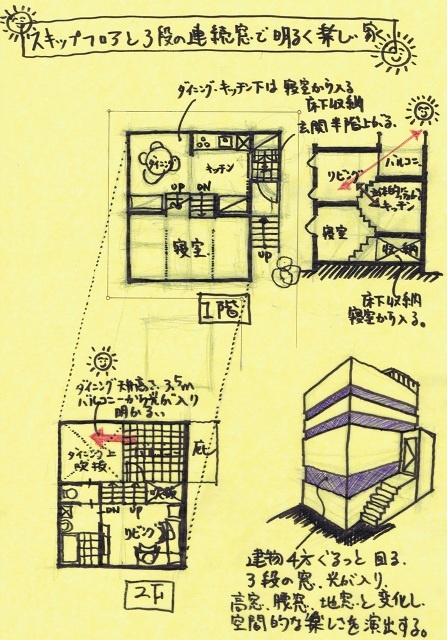 スキップフロアと3段の連続窓で明るく楽しい家
ダイニング・キッチン下は 寝室から入る
床下収納
玄関半階上がる。
ダイニング
キッチン
UP
DN
寝室
UP
1階
リビング
バルコニー
キッチン
寝室
収納
床下収納
寝室から入る。
ダイニング天井高さ3.5m
バルコニーから光が入り
明かるい
ダイニング上
吹抜
庇
吹抜
DN
UP
リビング
2F
建物4方ぐるっと回る、
3段の窓、光が入り、
高窓、腰窓、地窓と変化し
空間的な楽しさを演出する。